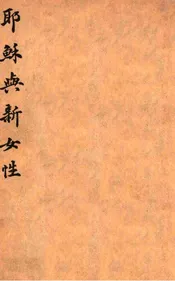 耶穌與新女性